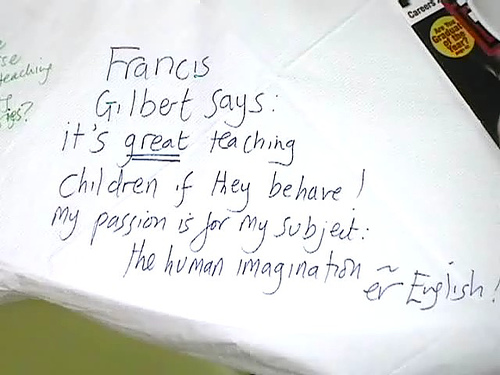 Francis
Gilbert says:
it's great teaching
children if they behave!
My passion is for my subject:
the human imagination ~
er English!
se
teaching
Careers
Are You
Graduate
of the
Year?